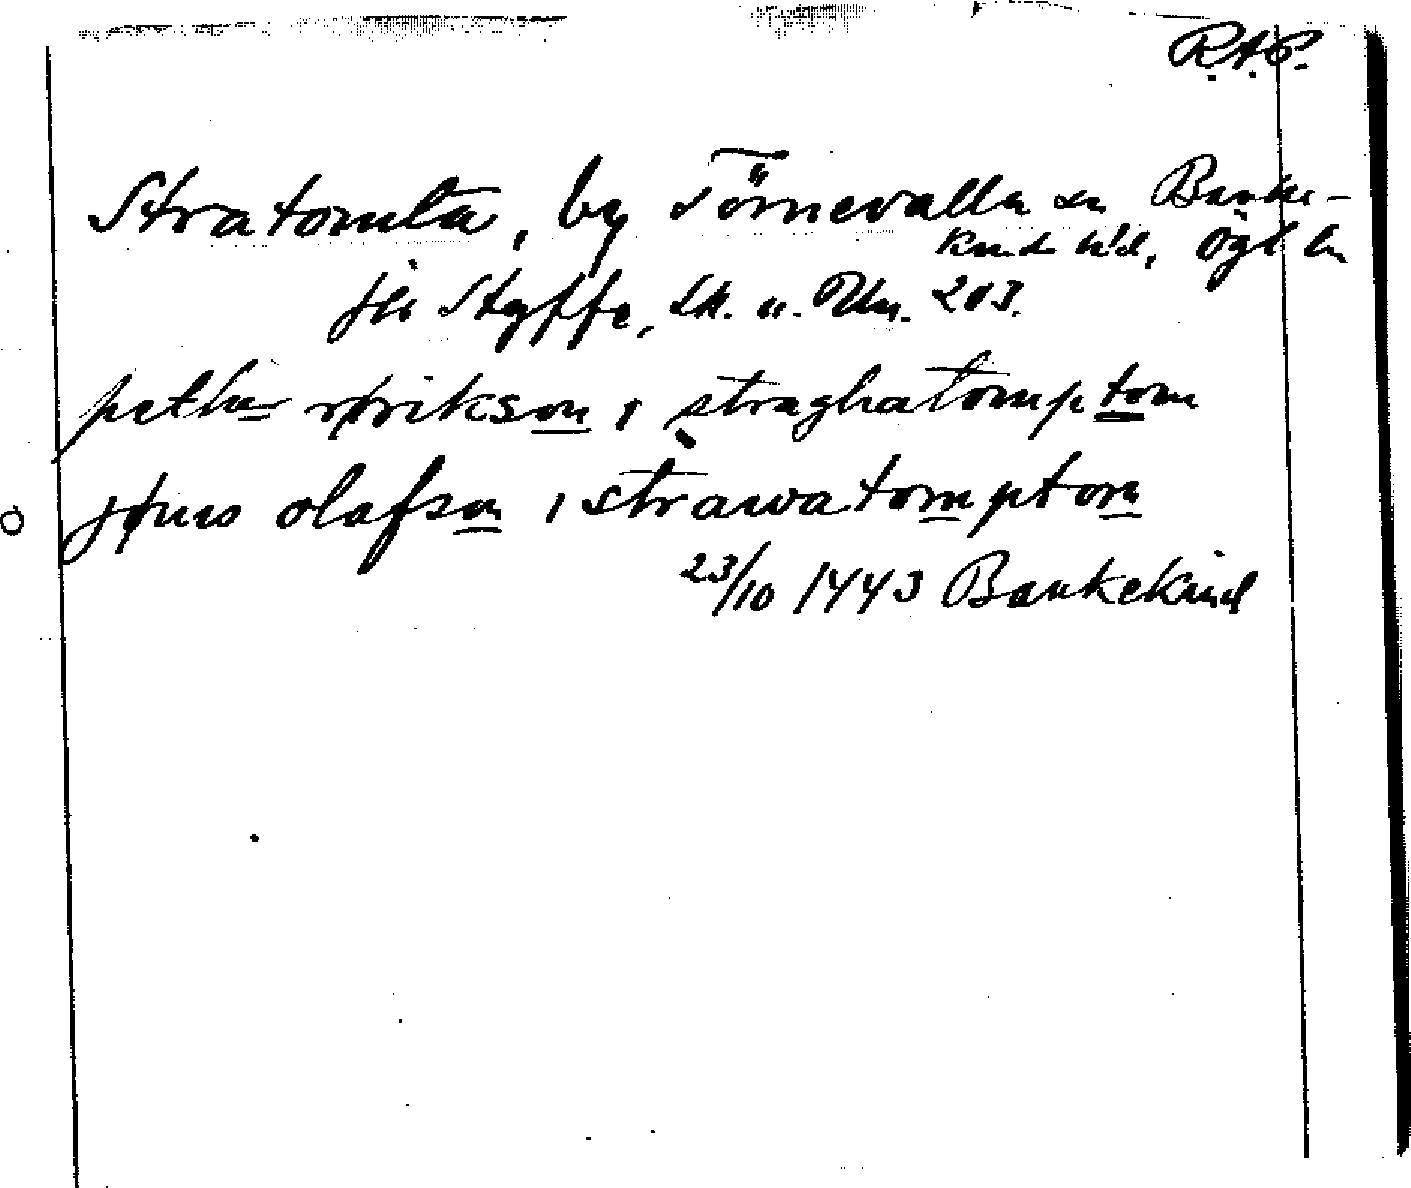 R.A.P.
Stratomta, by i Törnevalla sn Banke-
kinds hd, Ögl ln
jfr Styffe, Sk. u. Un. 203.
pether rørikson i straghatomptom
jønis olafson i strawatomptom
23/10 1443 Bankekind